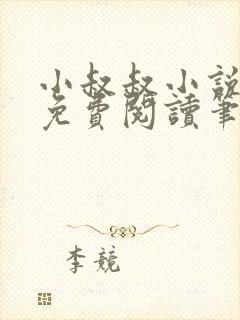 小叔叔小說
免費閱讀筆
李競